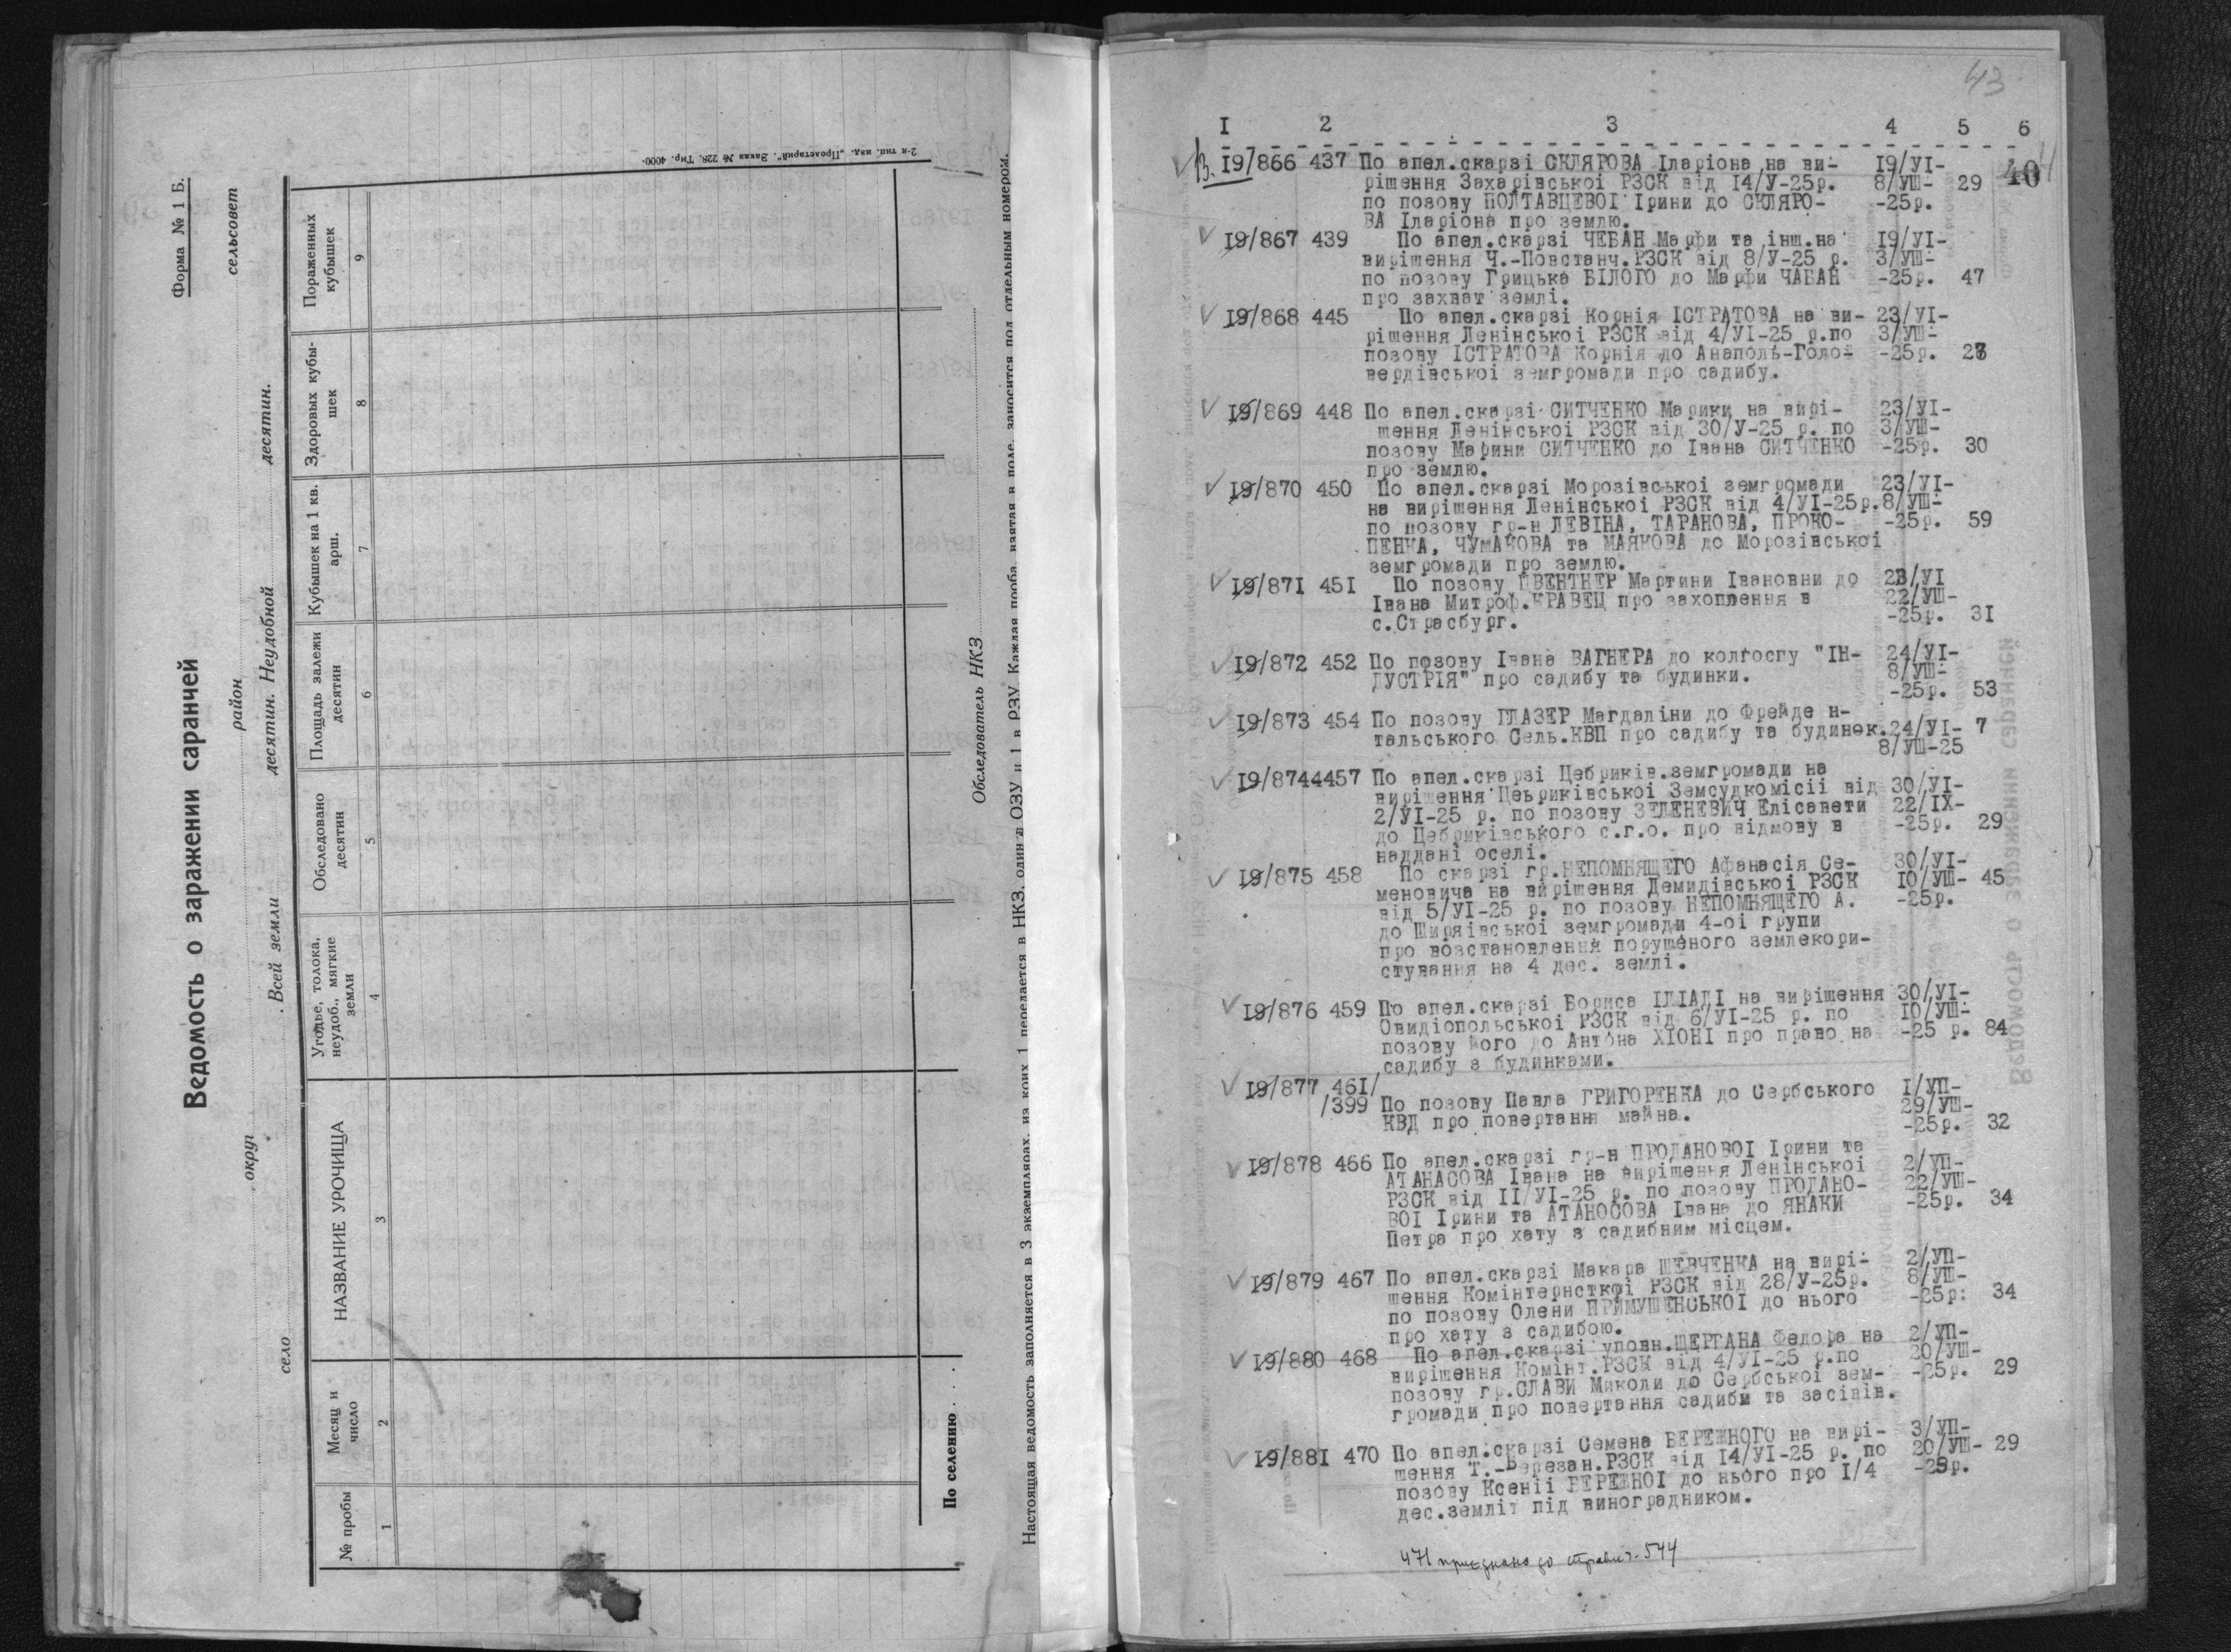 Форма № 1 Б.
Ведомость о заражении саранчей
округ район сельсовет
село Всей земли десятин. Неудобной десятин.
№ пробы
Месяц и число
НАЗВАНИЕ УРОЧИЩА
Угодье, толока, неудоб., мягкие земли
Обследовано десятин
Площадь залежи десятин
Кубышек на 1 кв. арш.
Здоровых кубышек
Пораженных кубышек
1 2 3 4 5 6 7 8 9
По селению . . . .
2-я тип. изд. „Пролетарий“. Заказ № 228. Тир. 4000.
Обследователь НКЗ
Настоящая ведомость заполняется в 3 экземплярах, из коих 1 передается в НКЗ, один в ОЗУ и 1 в РЗУ. Каждая проба, взятая в поле, заносится под отдельным номером.
43
I 2 3 4 5 6
13. I9/866 437 По апел.скарзі СКЛЯРОВА Іларіона на ви- I9/УІ-
рішення Захарівської РЗСК від I4/У-25р. 8/УШ- 29 40
по позову ПОЛТАВЦЕВОЇ Ірини до СКЛЯРО- -25р.
ВА Іларіона про землю.
I9/867 439 По апел.скарзі ЧЕБАН Марфи та інш.на I9/УІ-
вирішення Ч.-Повстанч.РЗСК від 8/У-25 р. 3/УШ-
по позову Грицька БІЛОГО до Марфи ЧАБАН -25р. 47
про захват землі.
I9/868 445 По апел.скарзі Корнія ІСТРАТОВА на ви- 23/УІ-
рішення Ленінської РЗСК від 4/УІ-25 р.по 3/УШ-
позову ІСТРАТОВА Корнія до Анаполь-Голо- -25р.
вердівської земгромади про садибу.
I9/869 448 По апел.скарзі СИТЧЕНКО Марики на вирі- 23/УІ-
шення Ленінської РЗСК від 30/У-25 р. по 3/УШ-
позову Марини СИТЧЕНКО до Івана СИТЧЕНКО -25р. 30
про землю.
I9/870 450 По апел.скарзі Морозівської земгромади 23/УІ-
на вирішення Ленінської РЗСК від 4/УІ-25р. 8/УШ-
по позову гр-н ЛЕВІНА, ТАРАНОВА, ПРОКО- -25р. 59
ПЕНКА, ЧУМАКОВА та МАЯКОВА до Морозівської
земгромади про землю.
I9/87I 45I По позову ЦВЕНТНЕР Мартини Івановни до 23/УІ
Івана Митроф.КРАВЕЦ про захоплення в 22/УШ-
с.Страсбург. -25р. 3I
I9/872 452 По позову Івана ВАГНЕРА до колгоспу "ІН- 24/УІ-
ДУСТРІЯ" про садибу та будинки. 8/УШ-
-25р. 53
I9/873 454 По позову ГЛАЗЕР Магдаліни до Фрейде н-
тальського Сель.КВП про садибу та будинок. 24/УІ- 7
8/УШ-25
I9/8744457 По апел.скарзі Цебриків.земгромади на
вирішення Цебриківської Земсудкомісії від 30/УІ-
2/УІ-25 р. по позову ЗЕЛЕНЕВИЧ Елісавети 22/ІХ-
до Цебриківського с.г.о. про відмову в -25р. 29
наддані оселі.
I9/875 458 По скарзі гр.НЕПОМНЯЩЕГО Афанасія Се- 30/УІ-
меновича на вирішення Демидівської РЗСК I0/УШ- 45
від 5/УІ-25 р. по позову НЕПОМНЯЩЕГО А. -25р.
до Ширяївської земгромади 4-ої групи
про возстановлення порушеного землекори-
стування на 4 дес. землі.
I9/876 459 По апел.скарзі Бориса ІЛІАДІ на вирішення 30/УІ-
Овидіопольської РЗСК від 6/УІ-25 р. по I0/УШ-
позову його до Антона ХІОНІ про право на -25 р. 84
садибу з будинками.
I9/877 46I/
/399 По позову Павла ГРИГОРЕНКА до Сербського I/УП-
КВД про повертання майна. 29/УШ-
-25р. 32
I9/878 466 По апел.скарзі гр-н ПРОДАНОВОІ Ірини та
АТАНАСОВА Івана на вирішення Ленінської 2/УП-
РЗСК від II/УІ-25 р. по позову ПРОДАНО- 22/УШ-
ВОІ Ірини та АТАНОСОВА Івана до ЯНАКИ -25р. 34
Петра про хату з садибним місцем.
I9/879 467 По апел.скарзі Макара ШЕВЧЕНКА на вирі- 2/УП-
шення Комінтернсткої РЗСК від 28/У-25р. 8/УШ-
по позову Олени ПРИМУШЕНСЬКОІ до нього -25р: 34
про хату з садибою.
I9/880 468 По апел.скарзі уповн.ЩЕРГАНА Федора на 2/УП-
вирішення Комінт.РЗСК від 4/УІ-25 р.по 20/УШ-
позову гр.СЛАВИ Миколи до Сербської зем- -25р. 29
громади про повертання садиби та засівів.
I9/88I 470 По апел.скарзі Семена БЕРЕЖНОГО на вирі- 3/УП-
шення Т.-Березан.РЗСК від I4/УІ-25 р. по 20/УШ- 29
позову Ксенії БЕРЕЖНОІ до нього про I/4 -25р.
дес.земліт під виноградником.
471 приєднано до справи-544